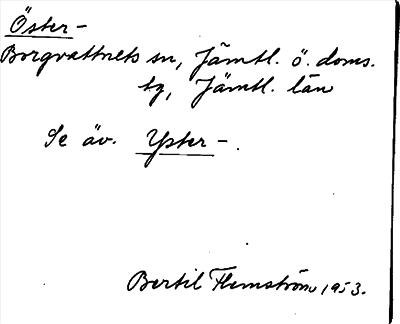 Öster-
Borgvattnets sn, Jämtl. ö. doms.
tg, Jämtl. län
Se äv. Yster-.
Bertil Flemström 1953.